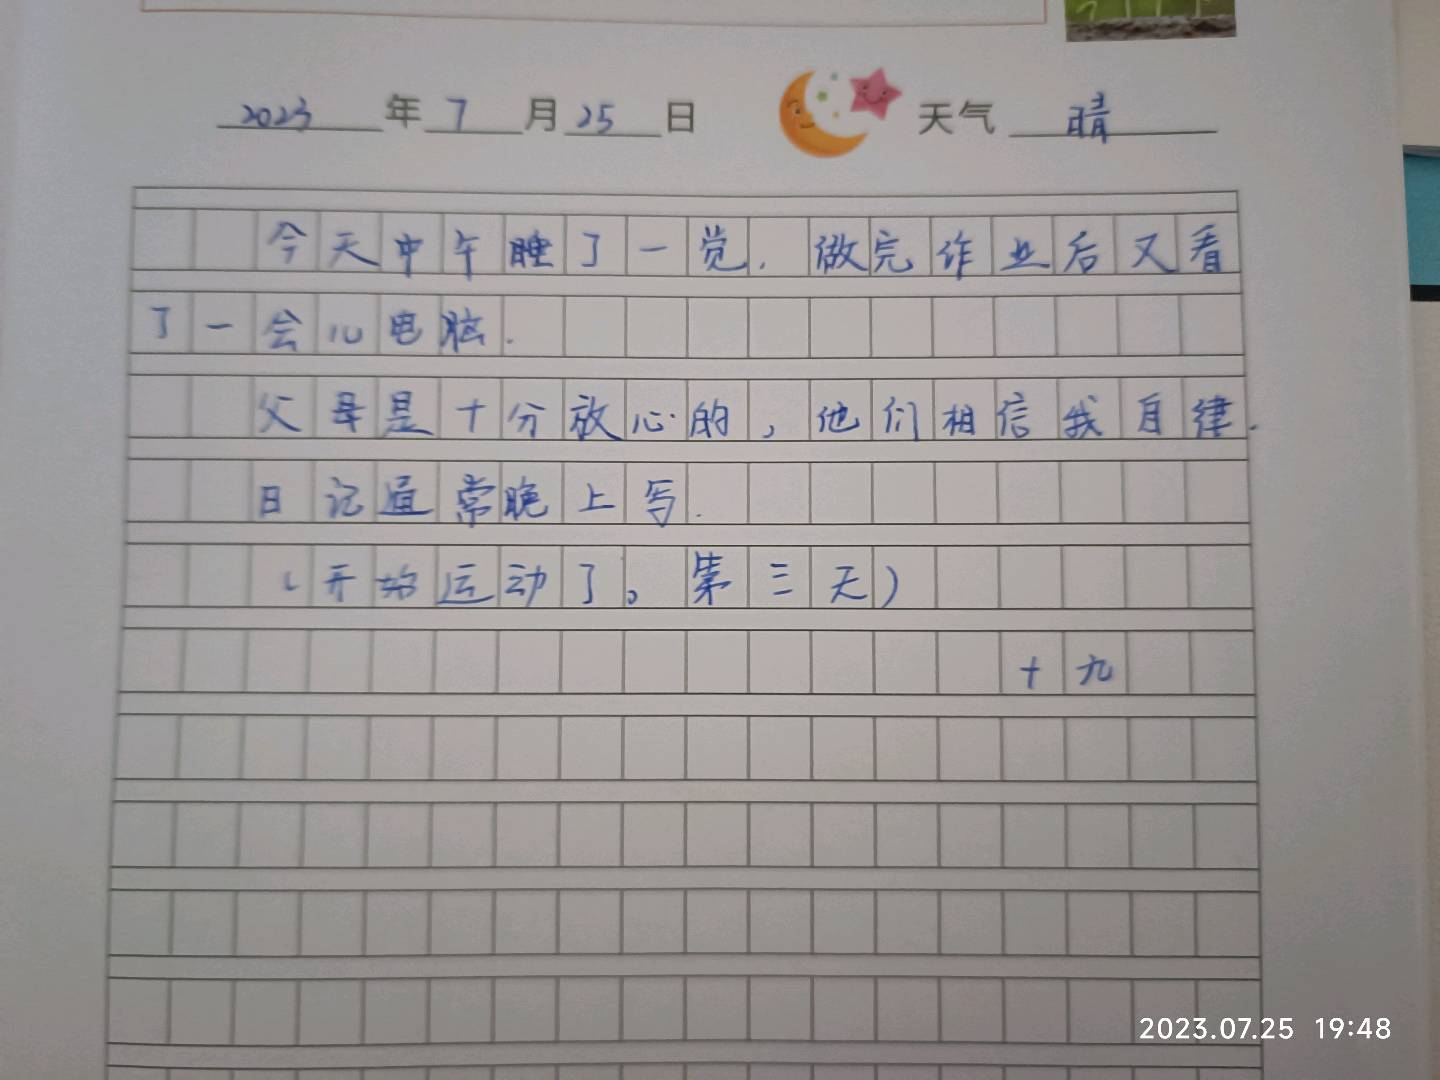 2023年7月25日 天气 晴
今天中午睡了一觉.做完作业后又看
了一会儿电脑.
父母是十分放心的,他们相信我自律.
日记通常晚上写.
(开始运动了。第三天)
十九
2023.07.25 19:48